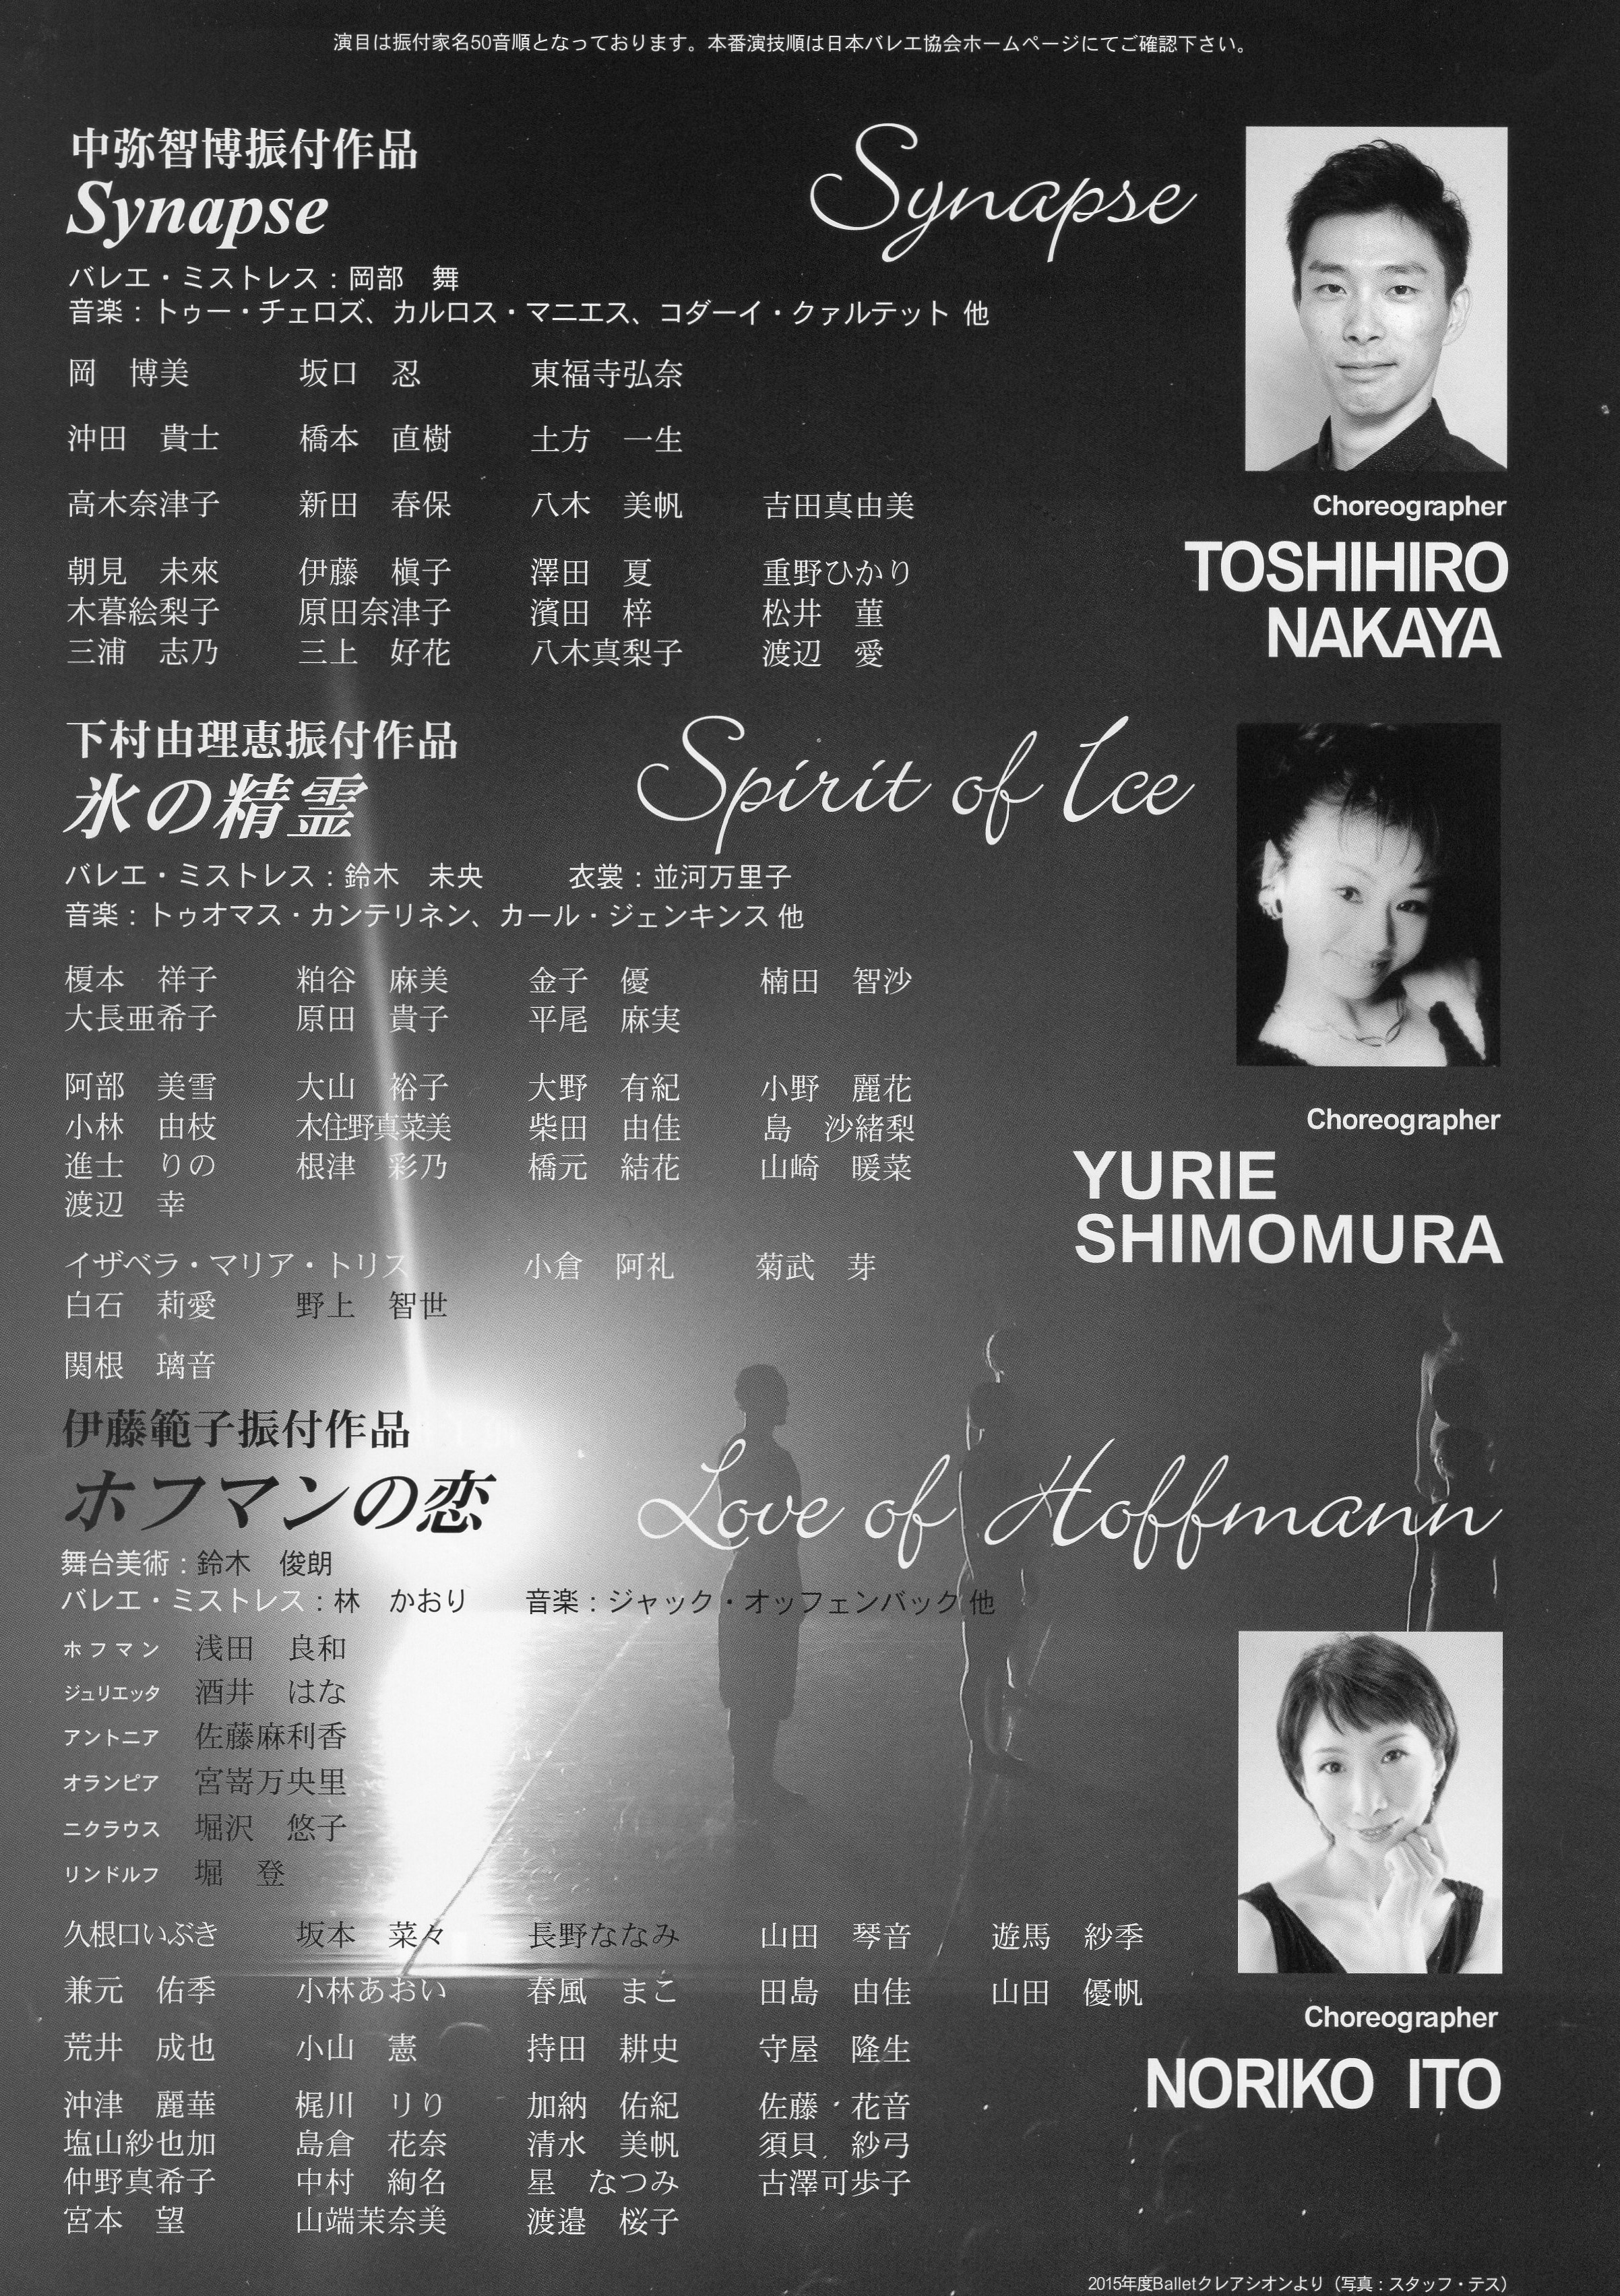 演目は振付家名50音順となっております。本番演技順は日本バレエ協会ホームページにてご確認下さい。
中弥智博振付作品
Synapse
Synapse
バレエ・ミストレス：岡部　舞
音楽：トゥー・チェロズ、カルロス・マニエス、コダーイ・クァルテット 他
岡　博美　坂口　忍　東福寺弘奈
沖田　貴士　橋本　直樹　土方　一生
高木奈津子　新田　春保　八木　美帆　吉田真由美
朝見　未來　伊藤　槇子　澤田　夏　重野ひかり
木暮絵梨子　原田奈津子　濱田　梓　松井　菫
三浦　志乃　三上　好花　八木真梨子　渡辺　愛
Choreographer
TOSHIHIRO
NAKAYA
下村由理恵振付作品
氷の精霊
Spirit of Ice
バレエ・ミストレス：鈴木　未央　衣裳：並河万里子
音楽：トゥオマス・カンテリネン、カール・ジェンキンス 他
榎本　祥子　粕谷　麻美　金子　優　楠田　智沙
大長亜希子　原田　貴子　平尾　麻実
阿部　美雪　大山　裕子　大野　有紀　小野　麗花
小林　由枝　木住野真菜美　柴田　由佳　島　沙緒梨
進士　りの　根津　彩乃　橋元　結花　山崎　暖菜
渡辺　幸
イザベラ・マリア・トリス　小倉　阿礼　菊武　芽
白石　莉愛　野上　智世
関根　璃音
Choreographer
YURIE
SHIMOMURA
伊藤範子振付作品
ホフマンの恋
Love of Hoffmann
舞台美術：鈴木　俊朗
バレエ・ミストレス：林　かおり　音楽：ジャック・オッフェンバック 他
ホフマン　浅田　良和
ジュリエッタ　酒井　はな
アントニア　佐藤麻利香
オランピア　宮嵜万央里
ニクラウス　堀沢　悠子
リンドルフ　堀　登
久根口いぶき　坂本　菜々　長野ななみ　山田　琴音　遊馬　紗季
兼元　佑季　小林あおい　春風　まこ　田島　由佳　山田　優帆
荒井　成也　小山　憲　持田　耕史　守屋　隆生
沖津　麗華　梶川　リり　加納　佑紀　佐藤　花音
塩山紗也加　島倉　花奈　清水　美帆　須貝　紗弓
仲野真希子　中村　絢名　星　なつみ　古澤可歩子
宮本　望　山端茉奈美　渡邉　桜子
Choreographer
NORIKO ITO
2015年度Balletクレアシオンより（写真：スタッフ・テス）